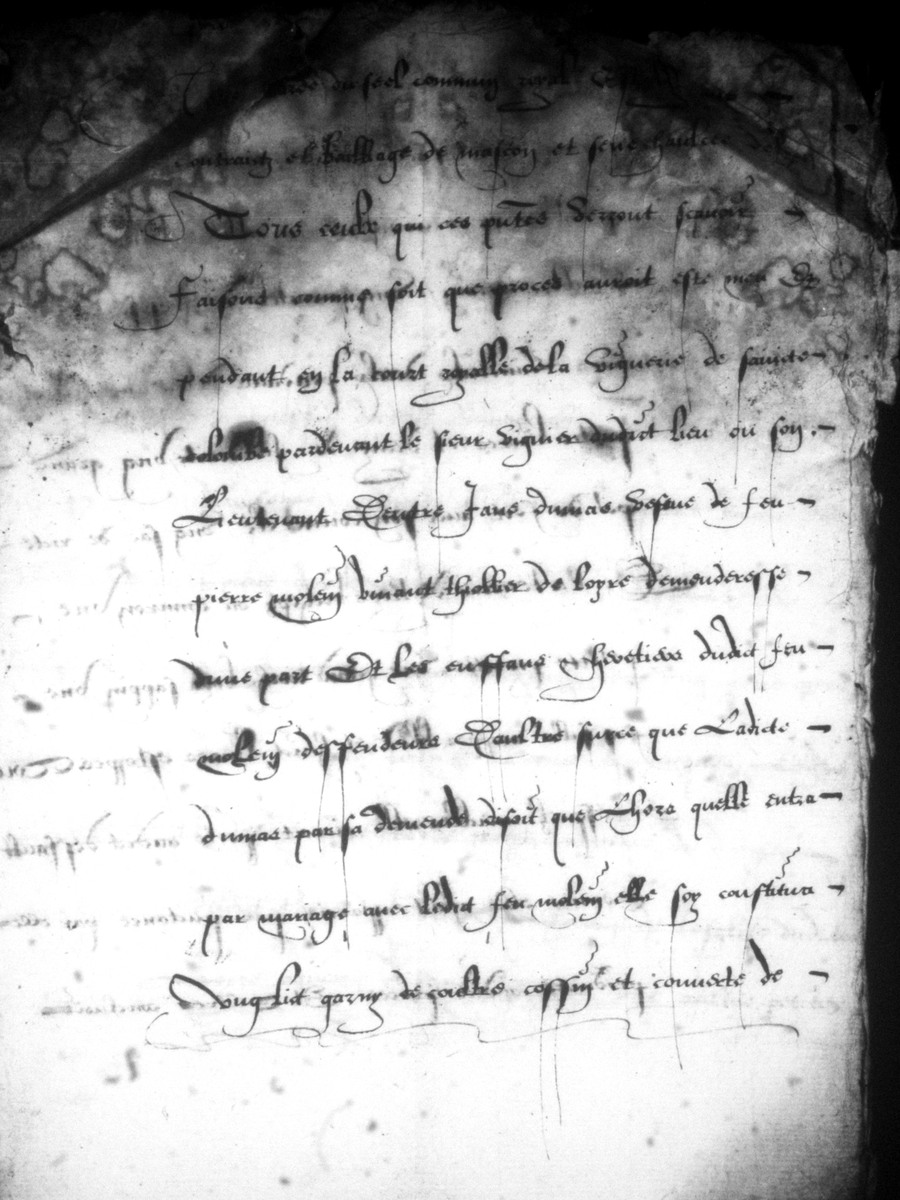 garde du seel commun royal
contractz et Bailliage de mascon et seneschaulcee
Tous ceulx qui ces pntes verront scavoir
Faisons comme soit que proces auroit este meu et
pendant en la court royalle de la viguerie de saincte
colombe pardevant le sieur viguier dudict lieu ou son
Lieutenant Dentre Jane dumas vefve de feu
pierre molein vivant thiollier de loyre demanderesse
dune part Et Les enffans & heretiers dudict feu
molein deffendeurs Daultre surce que Ladicte
dumas par sa demande disoit que Lhors quelle entra
par mariage avec ledict feu molein elle soy constitua
vng lict garny de coultre cossin et couverte de